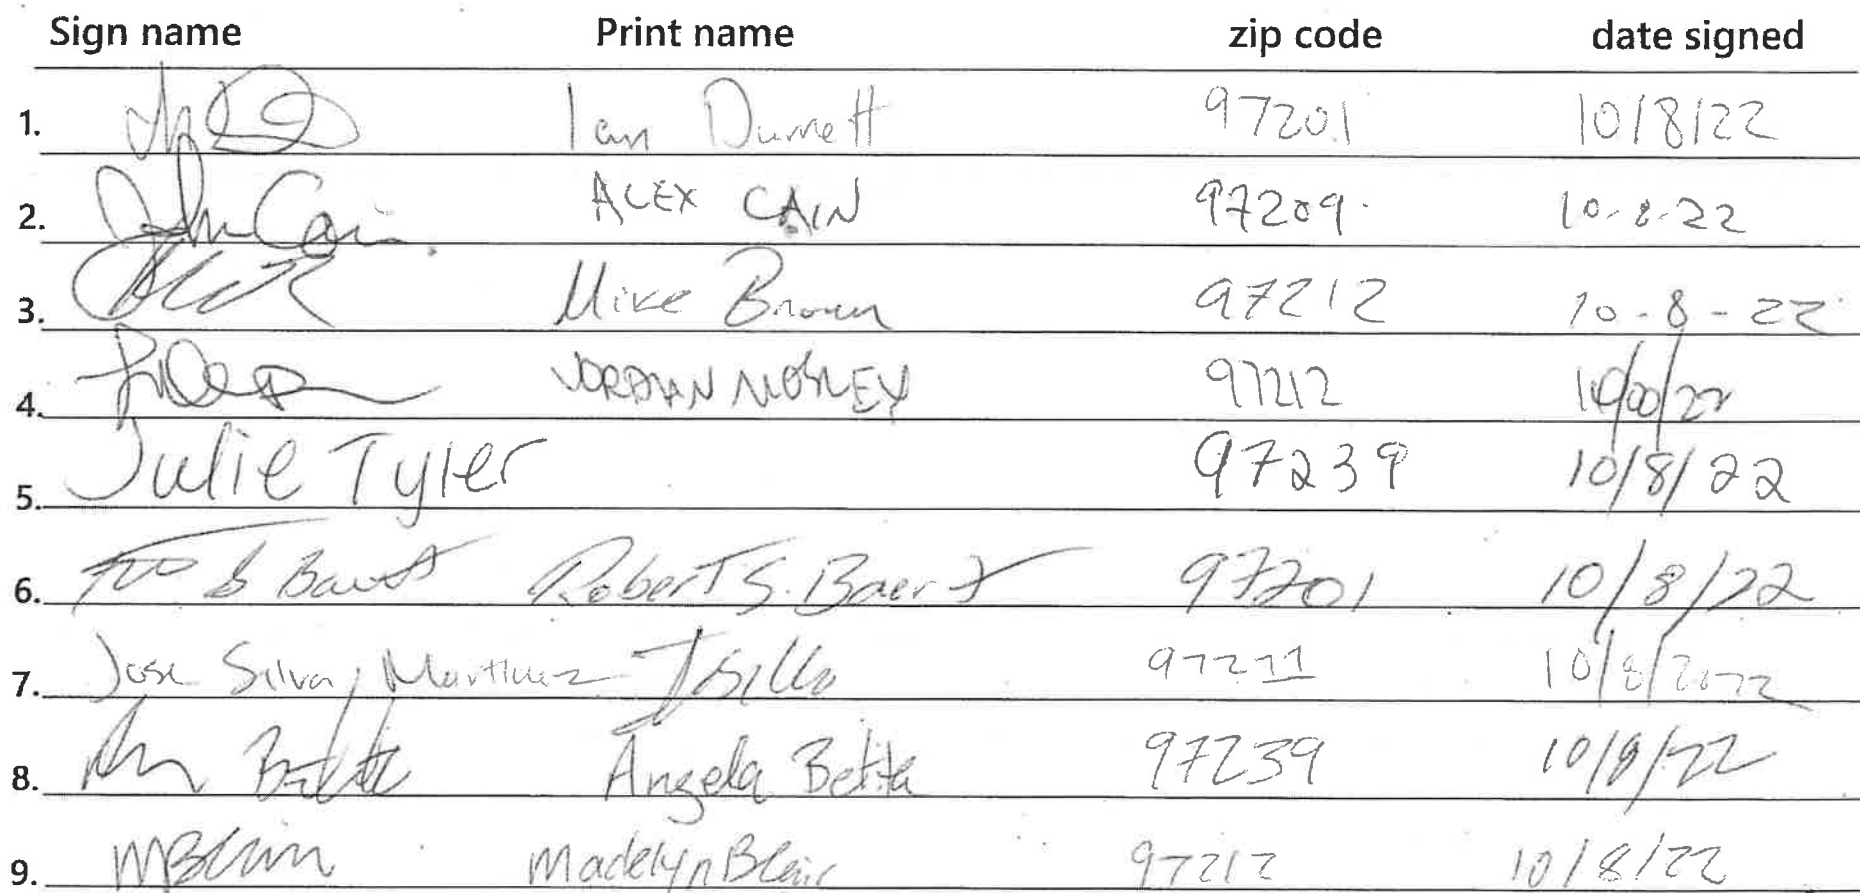 Sign name Print name zip code date signed
1. Ian Durrett 97201 10/8/22
2. John Cain ALEX CAIN 97209 10-8-22
3. Mike Brown 97212 10-8-22
4. JORDAN MOSLEY 97212 22
5. Julie Tyler 97239 10/8/22
6. Robert S. Baert 97201 10/8/22
7. Jose Silva, Martinez 97211 10/8/2022
8. Angela Betta 97239 10/8/22
9. MBlair Madelyn Blair 97212 10/8/22